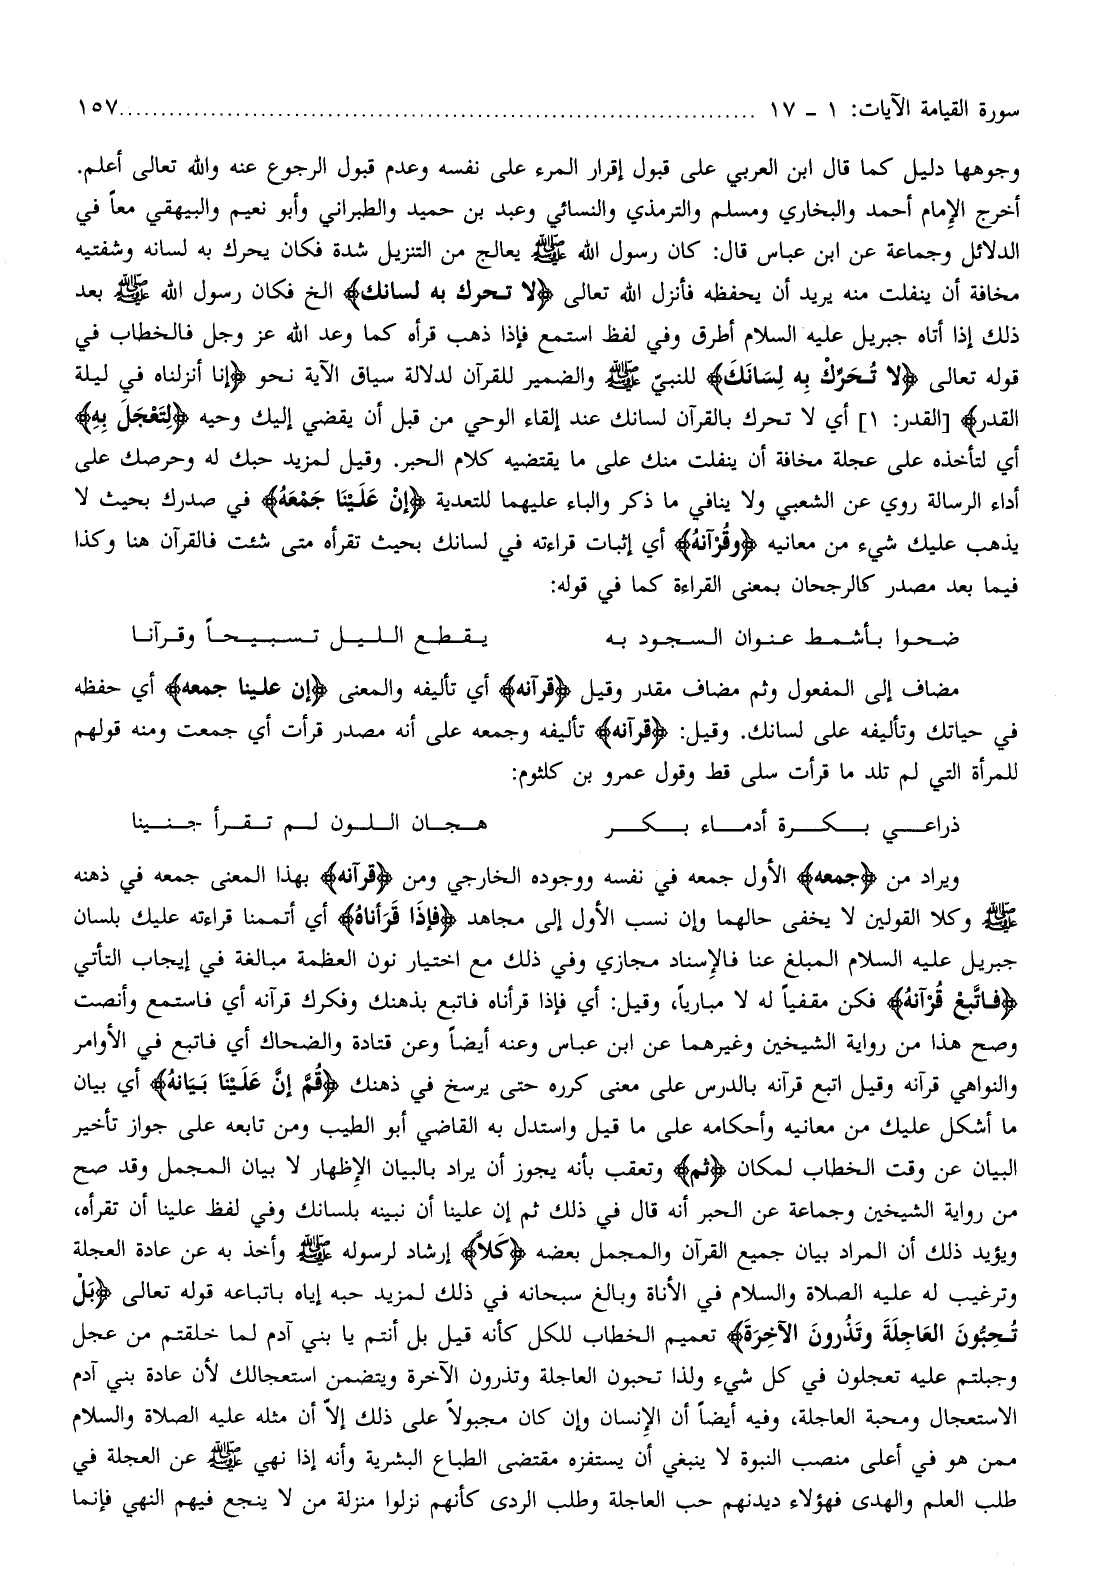 سورة القيامة الآيات: ١ - ١٧ ........................................................................... ١٥٧
وجوهها دليل كما قال ابن العربي على قبول إقرار المرء على نفسه وعدم قبول الرجوع عنه والله تعالى أعلم.
أخرج الإمام أحمد والبخاري ومسلم والترمذي والنسائي وعبد بن حميد والطبراني وأبو نعيم والبيهقي معاً في
الدلائل وجماعة عن ابن عباس قال: كان رسول الله ﷺ يعالج من التنزيل شدة فكان يحرك به لسانه وشفتيه
مخافة أن ينفلت منه يريد أن يحفظه فأنزل الله تعالى ﴿لا تحرك به لسانك﴾ الخ فكان رسول الله ﷺ بعد
ذلك إذا أتاه جبريل عليه السلام أطرق وفي لفظ استمع فإذا ذهب قرأه كما وعد الله عز وجل فالخطاب في
قوله تعالى ﴿لا تُحَرِّكْ بِه لِسَانَكَ﴾ للنبيّ ﷺ والضمير للقرآن لدلالة سياق الآية نحو ﴿إنا أنزلناه في ليلة
القدر﴾ [القدر: ١] أي لا تحرك بالقرآن لسانك عند إلقاء الوحي من قبل أن يقضي إليك وحيه ﴿لِتَعْجَلَ بِهِ﴾
أي لتأخذه على عجلة مخافة أن ينفلت منك على ما يقتضيه كلام الحبر. وقيل لمزيد حبك له وحرصك على
أداء الرسالة روي عن الشعبي ولا ينافي ما ذكر والباء عليهما للتعدية ﴿إنْ عَلَيْنَا جَمْعَهُ﴾ في صدرك بحيث لا
يذهب عليك شيء من معانيه ﴿وقُرْآنهُ﴾ أي إثبات قراءته في لسانك بحيث تقرأه متى شئت فالقرآن هنا وكذا
فيما بعد مصدر كالرجحان بمعنى القراءة كما في قوله:
ضحوا بأشمط عنوان السجود به يقطع الليل تسبيحاً وقرآنا
مضاف إلى المفعول وثم مضاف مقدر وقيل ﴿قرآنه﴾ أي تأليفه والمعنى ﴿إن علينا جمعه﴾ أي حفظه
في حياتك وتأليفه على لسانك. وقيل: ﴿قرآنه﴾ تأليفه وجمعه على أنه مصدر قرأت أي جمعت ومنه قولهم
للمرأة التي لم تلد ما قرأت سلى قط وقول عمرو بن كلثوم:
ذراعي بكرة أدماء بكر هجان اللون لم تقرأ جنينا
ويراد من ﴿جمعه﴾ الأول جمعه في نفسه ووجوده الخارجي ومن ﴿قرآنه﴾ بهذا المعنى جمعه في ذهنه
ﷺ وكلا القولين لا يخفى حالهما وإن نسب الأول إلى مجاهد ﴿فإذَا قَرَأناهُ﴾ أي أتممنا قراءته عليك بلسان
جبريل عليه السلام المبلغ عنا فالإسناد مجازي وفي ذلك مع اختيار نون العظمة مبالغة في إيجاب التأني
﴿فاتَّبعْ قُرْآنهُ﴾ فكن مقفياً له لا مبارياً، وقيل: أي فإذا قرأناه فاتبع بذهنك وفكرك قرآنه أي فاستمع وأنصت
وصح هذا من رواية الشيخين وغيرهما عن ابن عباس وعنه أيضاً وعن قتادة والضحاك أي فاتبع في الأوامر
والنواهي قرآنه وقيل اتبع قرآنه بالدرس على معنى كرره حتى يرسخ في ذهنك ﴿ثُمَّ إنَّ عَلَيْنَا بَيَانهُ﴾ أي بيان
ما أشكل عليك من معانيه وأحكامه على ما قيل واستدل به القاضي أبو الطيب ومن تابعه على جواز تأخير
البيان عن وقت الخطاب لمكان ﴿ثم﴾ وتعقب بأنه يجوز أن يراد بالبيان الإظهار لا بيان المجمل وقد صح
من رواية الشيخين وجماعة عن الحبر أنه قال في ذلك ثم إن علينا أن نبينه بلسانك وفي لفظ علينا أن تقرأه،
ويؤيد ذلك أن المراد بيان جميع القرآن والمجمل بعضه ﴿كَلاَّ﴾ إرشاد لرسوله ﷺ وأخذ به عن عادة العجلة
وترغيب له عليه الصلاة والسلام في الأناة وبالغ سبحانه في ذلك لمزيد حبه إياه باتباعه قوله تعالى ﴿بَلْ
تُحِبُّونَ العَاجِلَةَ وتَذُرونَ الآخِرَةَ﴾ تعميم الخطاب للكل كأنه قيل بل أنتم يا بني آدم لما خلقتم من عجل
وجبلتم عليه تعجلون في كل شيء ولذا تحبون العاجلة وتذرون الآخرة ويتضمن استعجالك لأن عادة بني آدم
الاستعجال ومحبة العاجلة، وفيه أيضاً أن الإنسان وإن كان مجبولاً على ذلك إلاّ أن مثله عليه الصلاة والسلام
ممن هو في أعلى منصب النبوة لا ينبغي أن يستفزه مقتضى الطباع البشرية وأنه إذا نهي ﷺ عن العجلة في
طلب العلم والهدى فهؤلاء ديدنهم حب العاجلة وطلب الردى كأنهم نزلوا منزلة من لا ينجع فيهم النهي فإنما